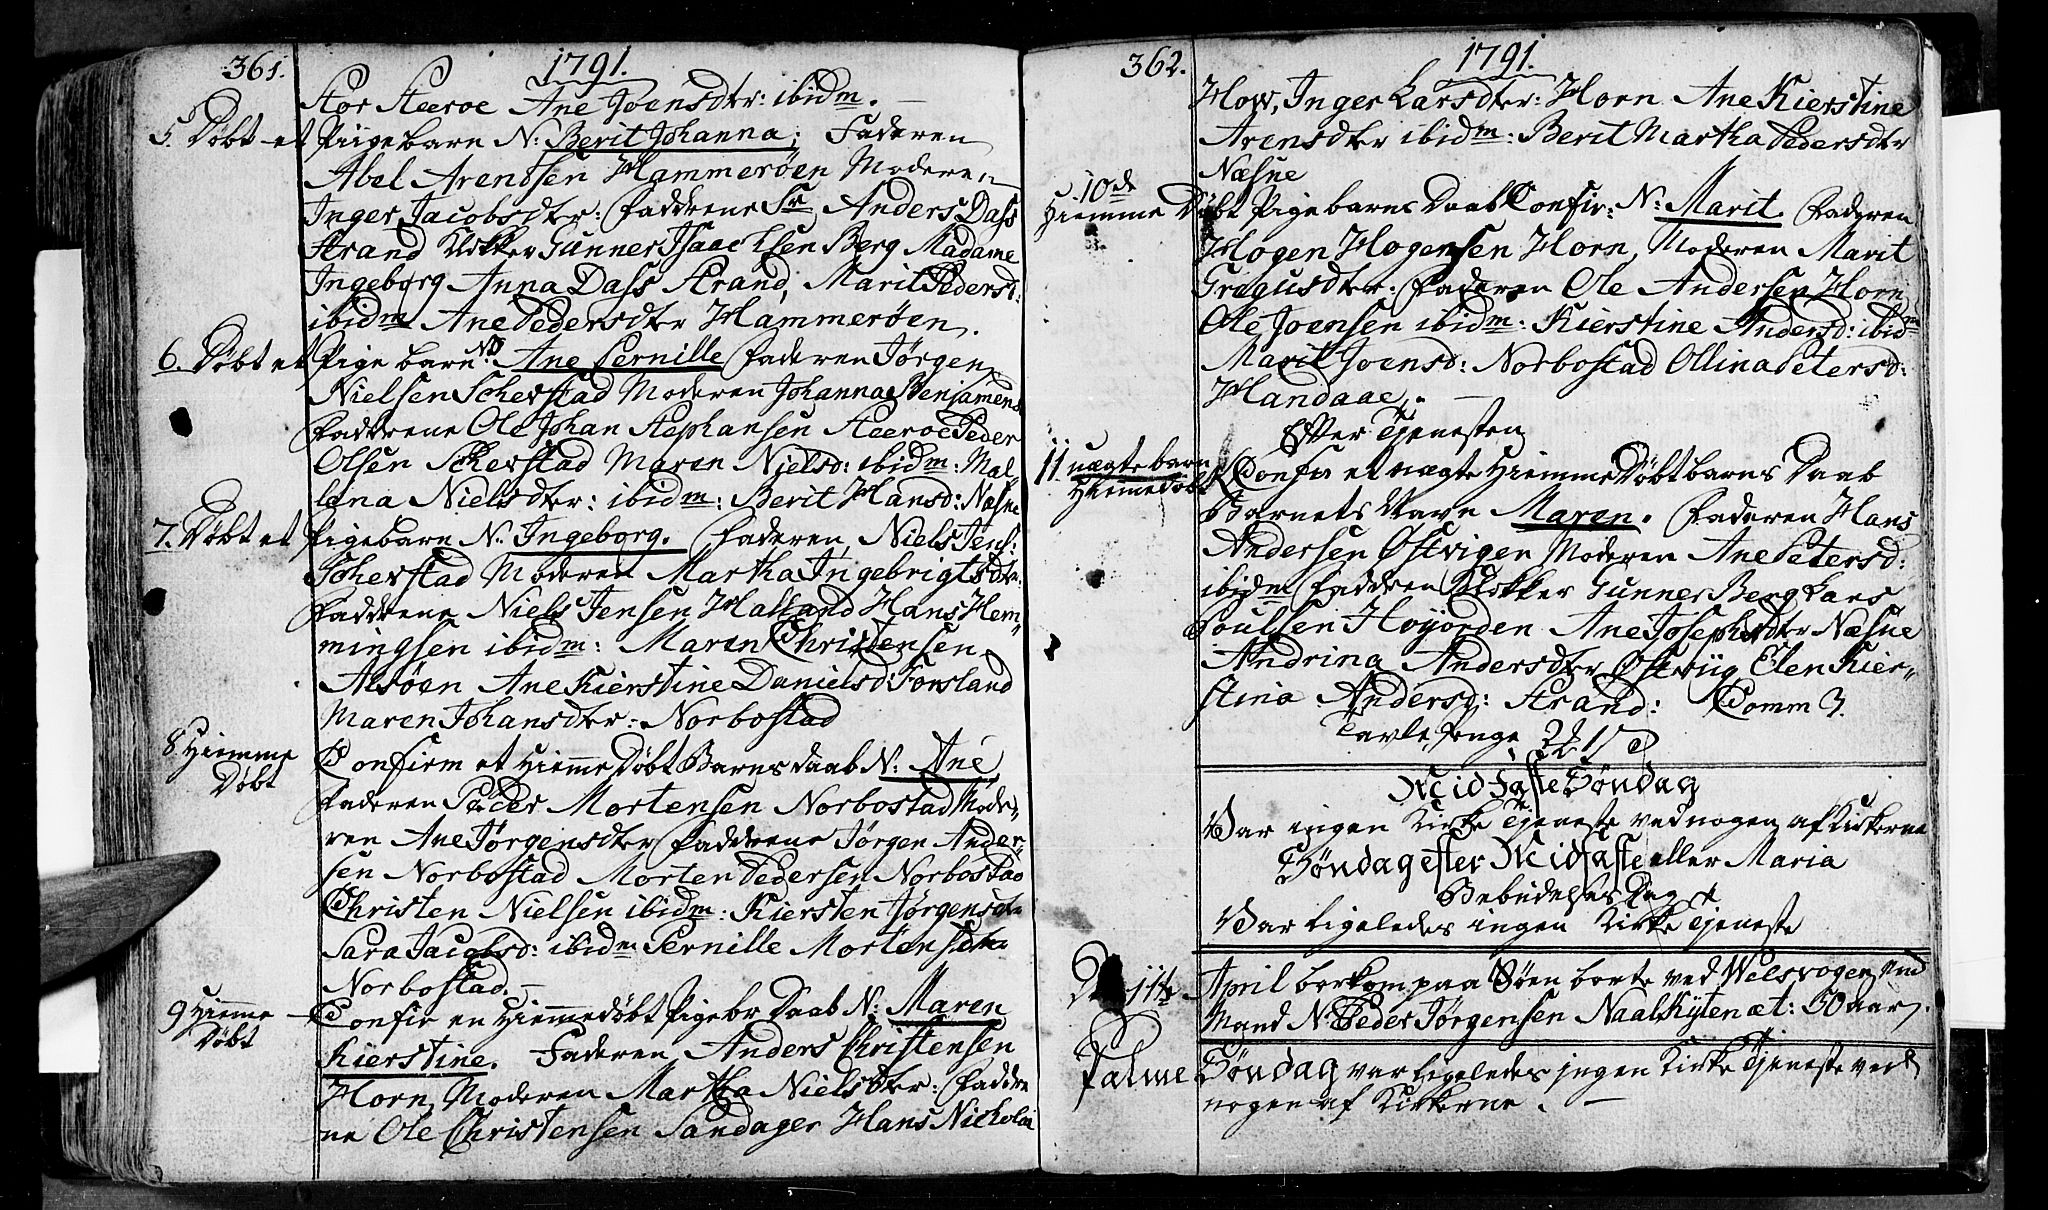 361. 1791.
Stor Steeroe Ane Joensdtr: ibidm. —
5. Døbt et Piigebarn N: Berit Johanna; Faderen
Abel Arentsen Hammerøen Moderen
Inger Jacobsdtr: Faddrene Sr Anders Dass
Strand Klokker Gunner Isaachsen Berg Madame
Ingeborg Anna Dass Strand, Marit Pedersd:
ibidm Ane Pedersdtr Hammerøen.
6. Døbt et Pigebarn N: Ane Pernille Faderen Jørgen
Nielsen Scherstad Moderen Johanna Benjamens
Faddrene Ole Johan Stephansen Steeroe Peder
Olsen Scherstad Maren Nielsd: ibidm: Mal„
lena Nielsdtr: ibidm: Berit Hansd: Næsne
7. Døbt et Pigebarn N: Ingeborg. Faderen Niels Jens:
Scherstad Moderen Martha Ingebrigtsdtr:
Faddrene Niels Jensen Halland Hans Hem„
mingsen ibidm: Maren Christensen
Alsøen Ane Kierstine Danielsd: Fonsland
Maren Johansdtr: Norbostad
8. Hiemme
Døbt
Confirm et Hiemme Døbt Barns daab N: Ane
Faderen Peder Mortensen Norbostad Mode„
ren Ane Jørgensdtr Faddrene Jørgen Ander„
sen Norbostad Morten Pedersen Norbostad
Christen Nielsen ibidm: Kiersten Jørgensdr
Sara Jacobsd: ibidm Pernille Mortensdtr
Norbostad. —
9 Hieme
Døbt
Confir en Hiemmedøbt Pigebr Daab N: Maren
Kierstine. Faderen Anders Christensen
Horn, Moderen Martha Nielsdtr: Faddre
ne Ole Christensen Sandager Hans Nicholai
362. 1791.
How, Inger Larsdtr: Horn Ane Kierstine
Arensdtr ibidm: Berit Martha Pedersdtr
Næsne
10de
Hiemme Døbt Pigebarns Daab Confir: N: Marit. Faderen
Hogen Hogensen Horn, Moderen Marit
Gregusdtr: Faderen Ole Andersen Horn
Ole Joensen ibidm: Kierstine Andersd: ibidm
Marit Joensd: Norbostad Ollina Petersd:
Handaae. —
Efter Tjenesten
11 uægte barn
Hiemedøbt
Confir et uægte Hiemme Døbt barns Daab
Barnets Navn Maren. Faderen Hans
Andersen Østvigen Moderen Ane Petersd:
ibidm Faddren Klokker Gunner Berg Lars
Poulsen Høyorden Ane Josephsdtr Næsne
Andrina Andersdtr Østviig Elen Kier„
stina Andersd: Strand: Comm 3.
Tavle penge
Mid Faste Søndag
Var ingen Kirke Tjeneste ved nogen af Kirkerne
Søndag efter Midfaste eller Maria
Bebudelses Dag
Var ligeledes ingen Kirke Tjeneste
D 11te April bortkom paa Søen borte ved Welsvogen
Mand N: Peder Jørgensen Naalskyten æt: 50 aar.
Palme Søndag var ligeledes ingen Kirke Tjeneste ved
nogen af Kirkerne. —